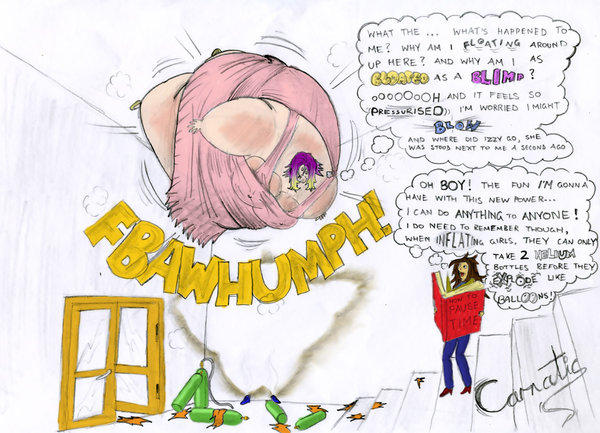 WHAT THE ... WHAT'S HAPPENED TO
ME? WHY AM I FLOATING AROUND
UP HERE? AND WHY AM I AS
BLOATED AS A BLIMP?
OOOOOOOH AND IT FEELS SO
PRESSURISED)), I'M WORRIED I MIGHT
BLOW
AND WHERE DID IZZY GO, SHE
WAS STOOD NEXT TO ME A SECOND AGO
OH BOY! THE FUN I'M GONNA
HAVE WITH THIS NEW POWER...
I CAN DO ANYTHING TO ANYONE!
I DO NEED TO REMEMBER THOUGH,
WHEN INFLATING GIRLS, THEY CAN ONLY
TAKE 2 HELIUM
BOTTLES BEFORE THEY
EXPLODE LIKE
BALLOONS!
FBAWHUMPH!
HOW TO
PAUSE
TIME
Carnatic